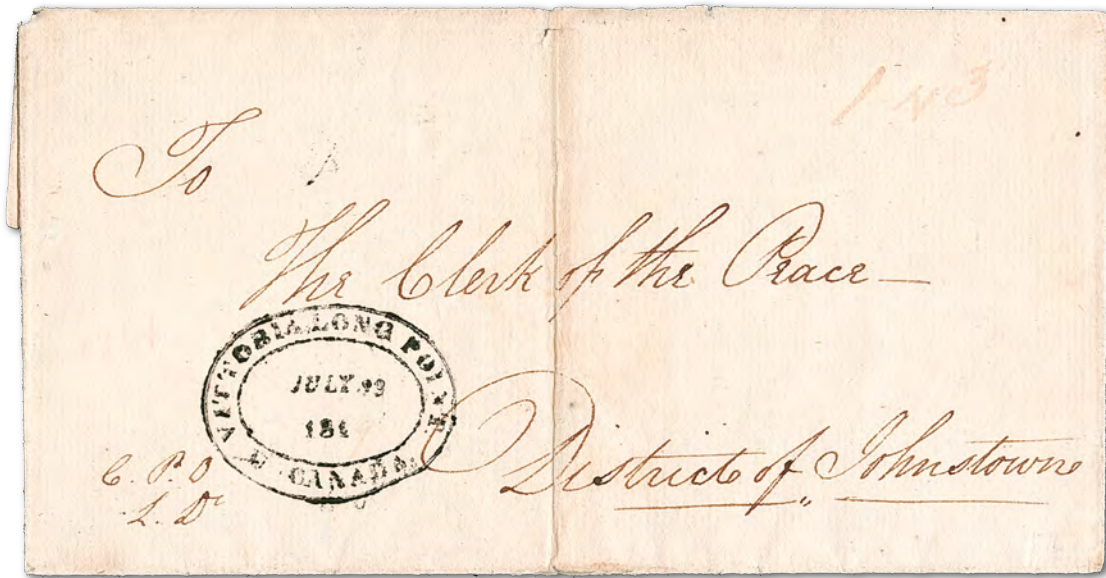 1 N 3
To
The Clerk of the Peace —
VITTORIA LONG POINT
JULY
181
U. CANADA.
District of Johnstown
C. P. O
L. Dr